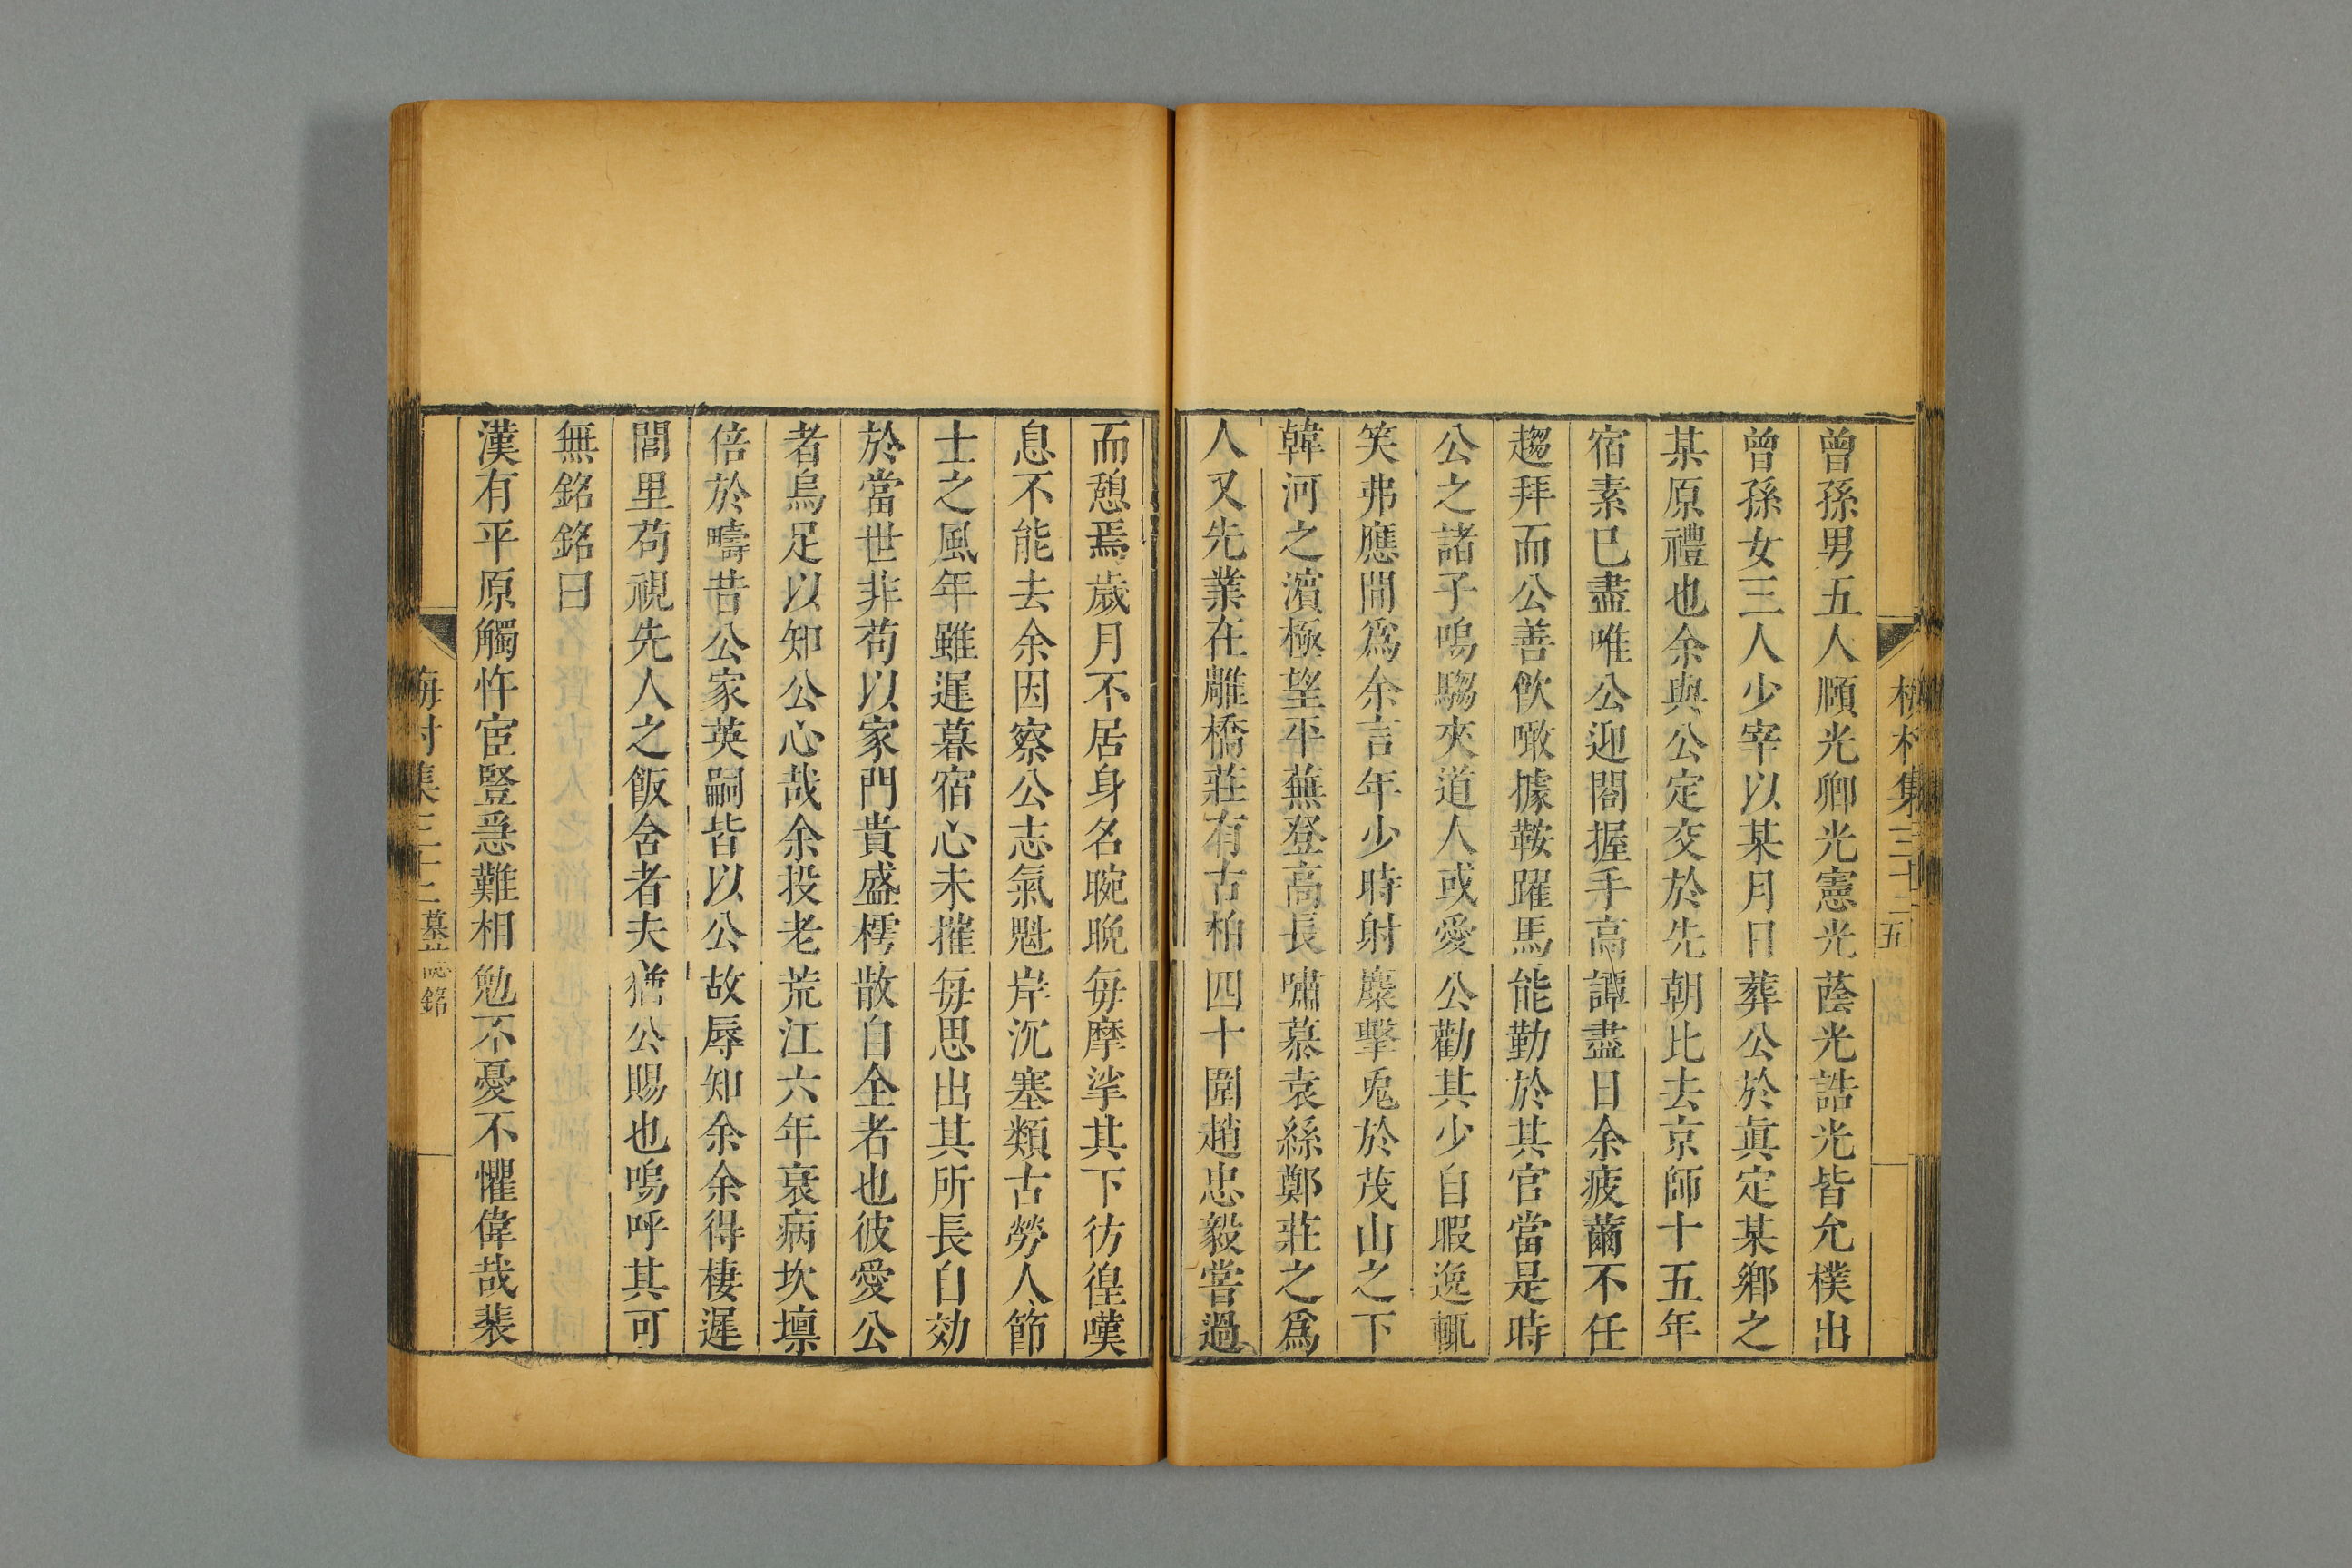 梅村集三十二 五
曾孫男五人頋光卿光憲光蔭光誥光皆允樸出
曾孫女三人少宰以某月日葬公於眞定某鄉之
某原禮也余與公定交於先朝比去京師十五年
宿素已盡唯公迎閤握手高譚盡日余疲薾不任
趨拜而公善飲噉據鞍躍馬能勤於其官當是時
公之諸子鳴騶夾道人或愛公勸其少自暇逸輒
笑弗應間爲余言年少時射麋擊兎於茂山之下
韓河之濵極望平蕪登高長嘯慕袁絲鄭莊之爲
人又先業在雕橋莊有古柏四十圍趙忠毅嘗過
而憩焉歲月不居身名晼晚毎摩挲其下彷徨嘆
息不能去余因察公志氣魁岸沉塞類古勞人節
士之風年雖遲暮宿心未摧毎思出其所長自効
於當世非苟以家門貴盛樗散自全者也彼愛公
者烏足以知公心哉余投老荒江六年衰病坎壈
倍於疇昔公家英嗣皆以公故辱知余余得棲遲
閭里苟視先人之飯舍者夫猶公賜也嗚呼其可
無銘銘曰
漢有平原觸忤宦豎急難相勉不憂不懼偉哉裴
梅村集三十二 墓誌銘